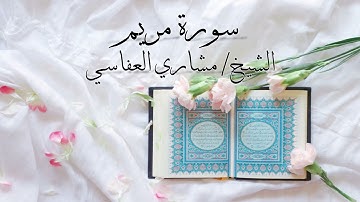 سورة مريم
الشيخ/ مشاري العفاسي